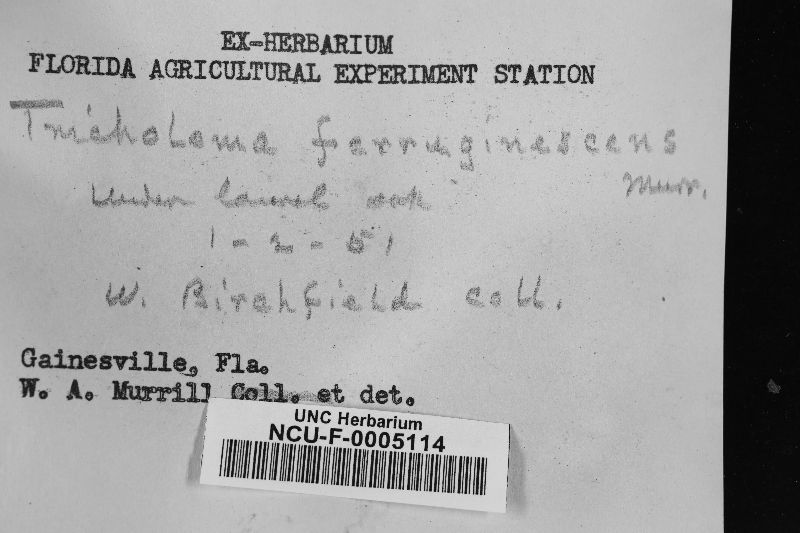 EX-HERBARIUM
FLORIDA AGRICULTURAL EXPERIMENT STATION
Tricholoma ferruginescens
Murr.
Under laurel oak
1-2-51
W. Birchfield coll.
Gainesville, Fla.
W. A. Murrill Coll. et det.
UNC Herbarium
NCU-F-0005114